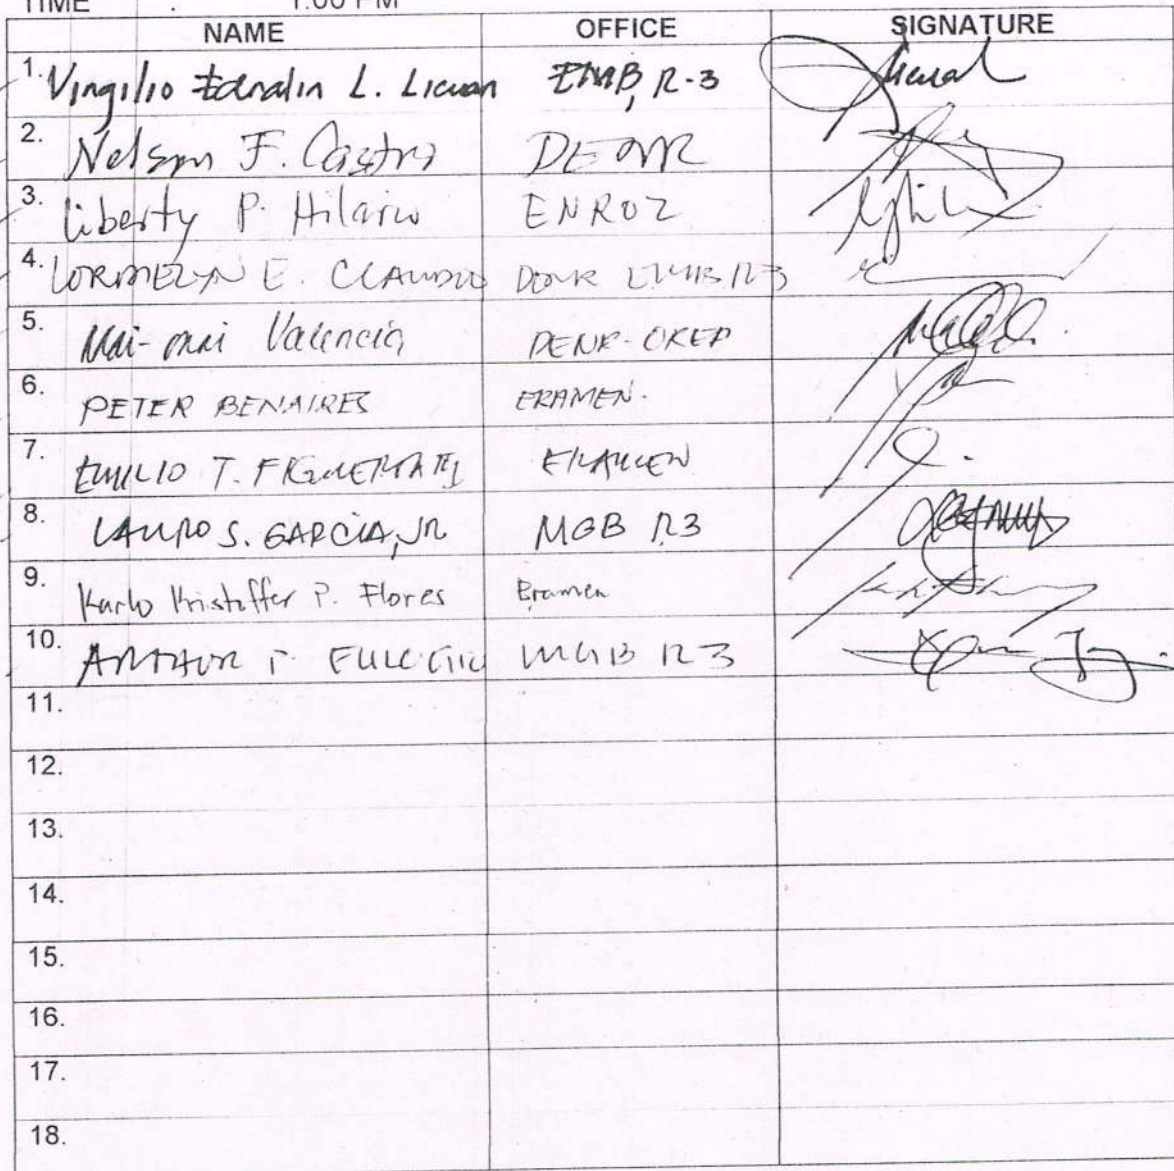 TIME : 1:00 PM
NAME OFFICE SIGNATURE
1. Virgilio L. Licuan EMB, R-3
2. Nelson F. Castro DENR
3. Liberty P. Hilario
4. LORMELYN E. CLAUDIO DENR EMB R3
5. Mai-mai Valencia DENR-
6. PETER BENAIRES ERAMEN.
7. EMILIO T. FIGUEROA III ERAMEN
8. LAURO S. GARCIA, JR MGB R3
9. Karlo Kristoffer P. Flores Eramen
10. ARTHUR T. EULOGIO MGB R3
11.
12.
13.
14.
15.
16.
17.
18.